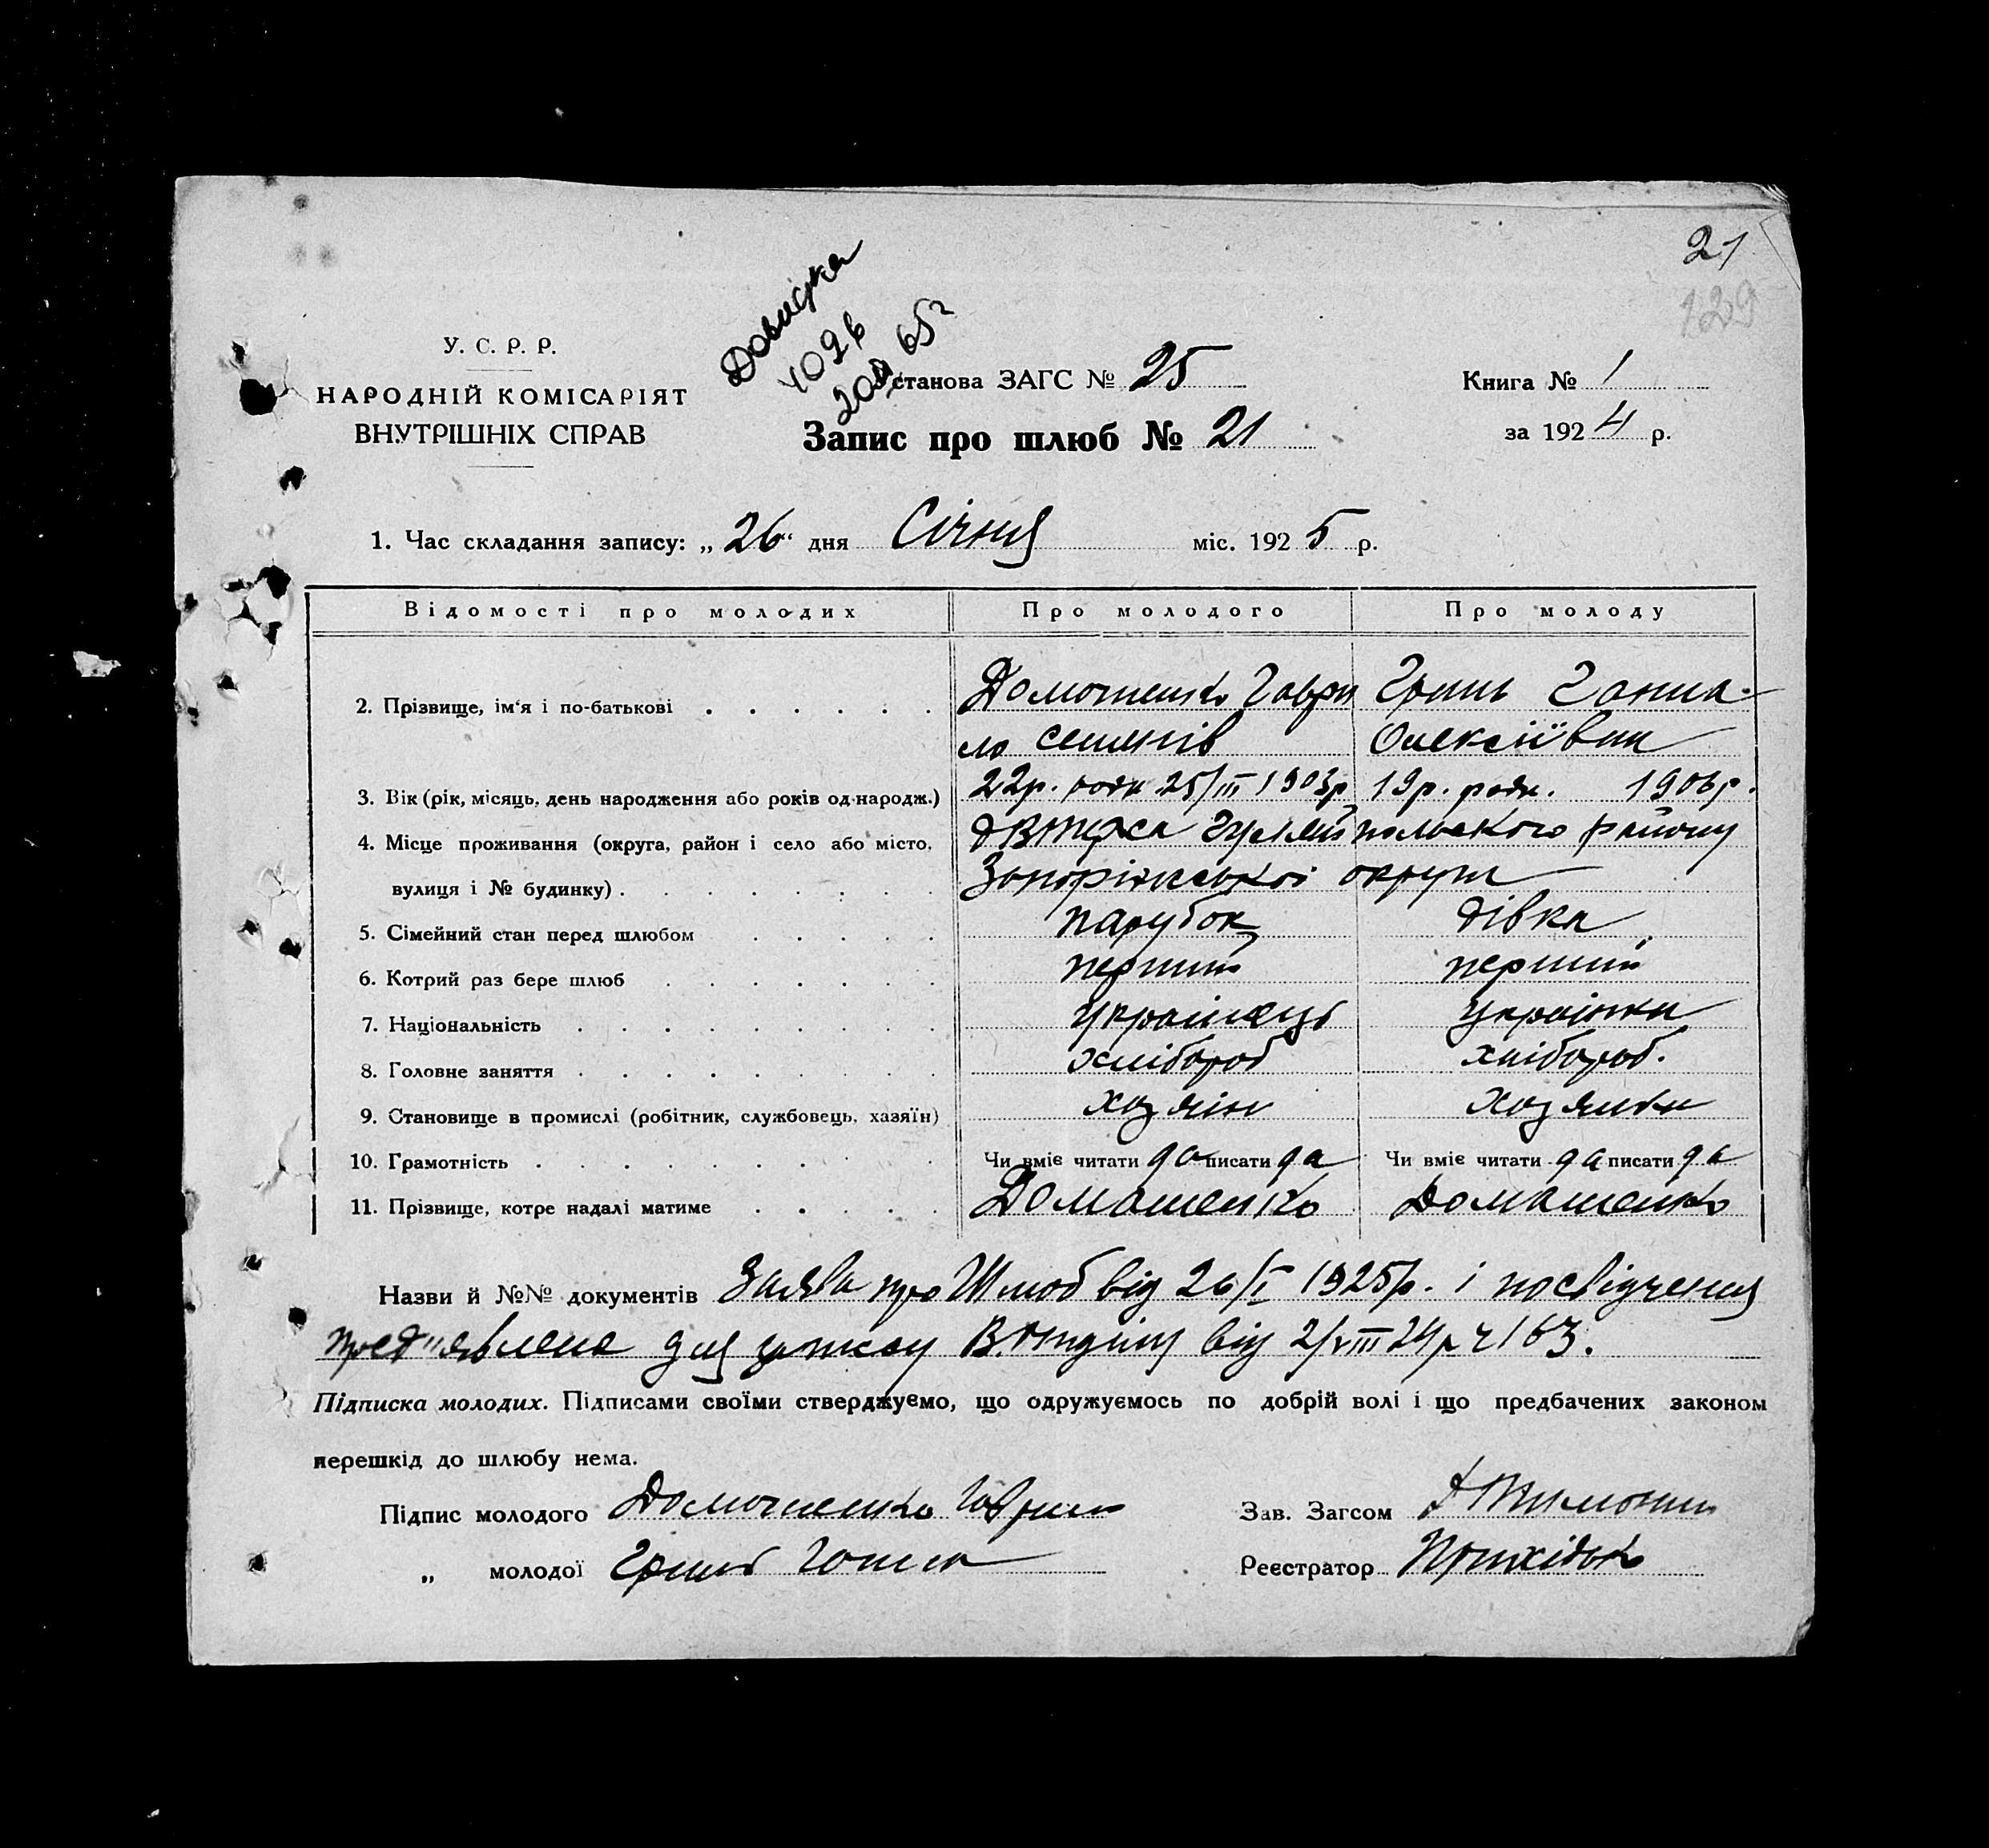 21
129
Довідка
У. С. Р. Р.
НАРОДНІЙ КОМІСАРІЯТ
ВНУТРІШНІХ СПРАВ
Установа ЗАГС № 25
Запис про шлюб № 21
Книга № 1
за 1924 р.
1. Час складання запису: „26“ дня Січня міс. 1925 р.
Відомості про молодих Про молодого Про молоду
2. Прізвище, ім'я і по-батькові Домашенко Гаври Гринь Ганна
ло Семенів Олексіївна
3. Вік (рік, місяць, день народження або років од народж.) 22р. родж 25/III 1903р 19р. родж. 1906р.
4. Місце проживання (округа, район і село або місто, Гуляйпольского району
вулиця і № будинку) Запоріжської округи
5. Сімейний стан перед шлюбом парубок дівка
6. Котрий раз бере шлюб перший перший
7. Національність Українець Українка
8. Головне заняття хлібороб хлібороб.
9. Становище в промислі (робітник, службовець, хазяїн) хозяін хозяйка
10. Грамотність Чи вміє читати да писати да Чи вміє читати да писати да
11. Прізвище, котре надалі матиме Домашенко Домашенко
Назви й №№ документів Заява про Шлюб від 26/I 1925р. і посвідчення
пред"явлене для від 2/VIII 24р ч 163.
Підписка молодих. Підписами своїми стверджуємо, що одружуємось по добрій волі і що предбачених законом
перешкід до шлюбу нема.
Підпис молодого Домашенко Гаврило Зав. Загсом
„ молодої Гринь Ганна Реєстратор